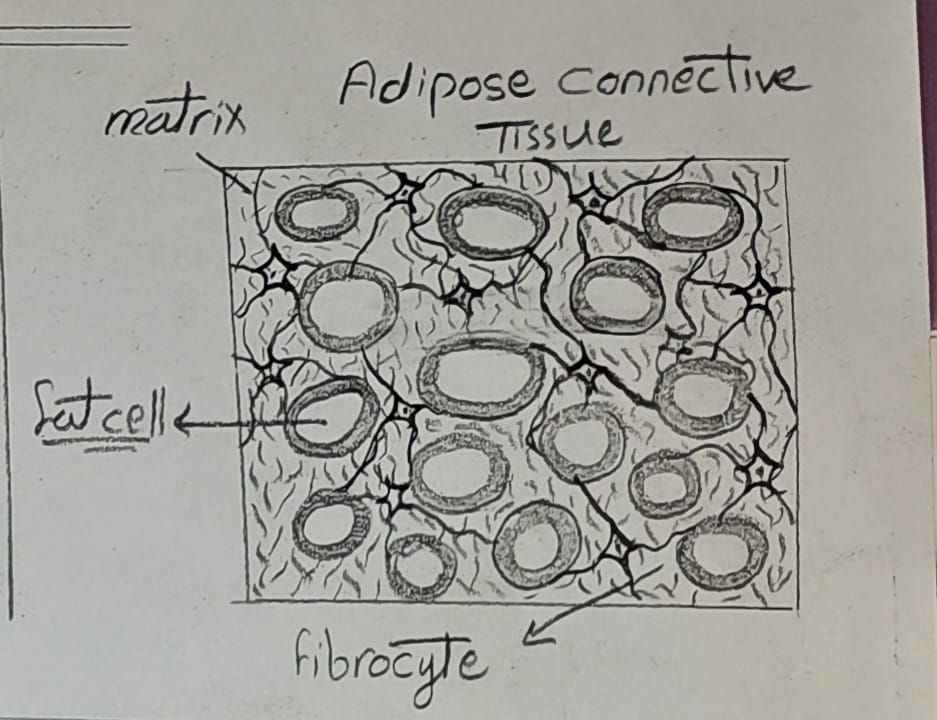 Adipose connective
Tissue
matrix
fat cell
fibrocyte